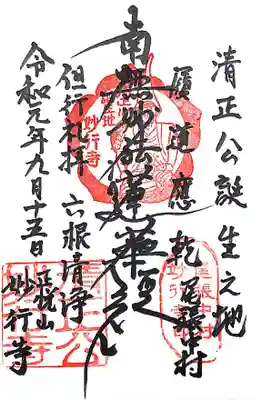 清正公誕生之地
履道應乾 尾張中村
南無妙法蓮華経
但行礼拝 六根清浄
令和元年九月十五日
正悦山
妙行寺
妙行寺
尾張中村
妙行寺
清正公